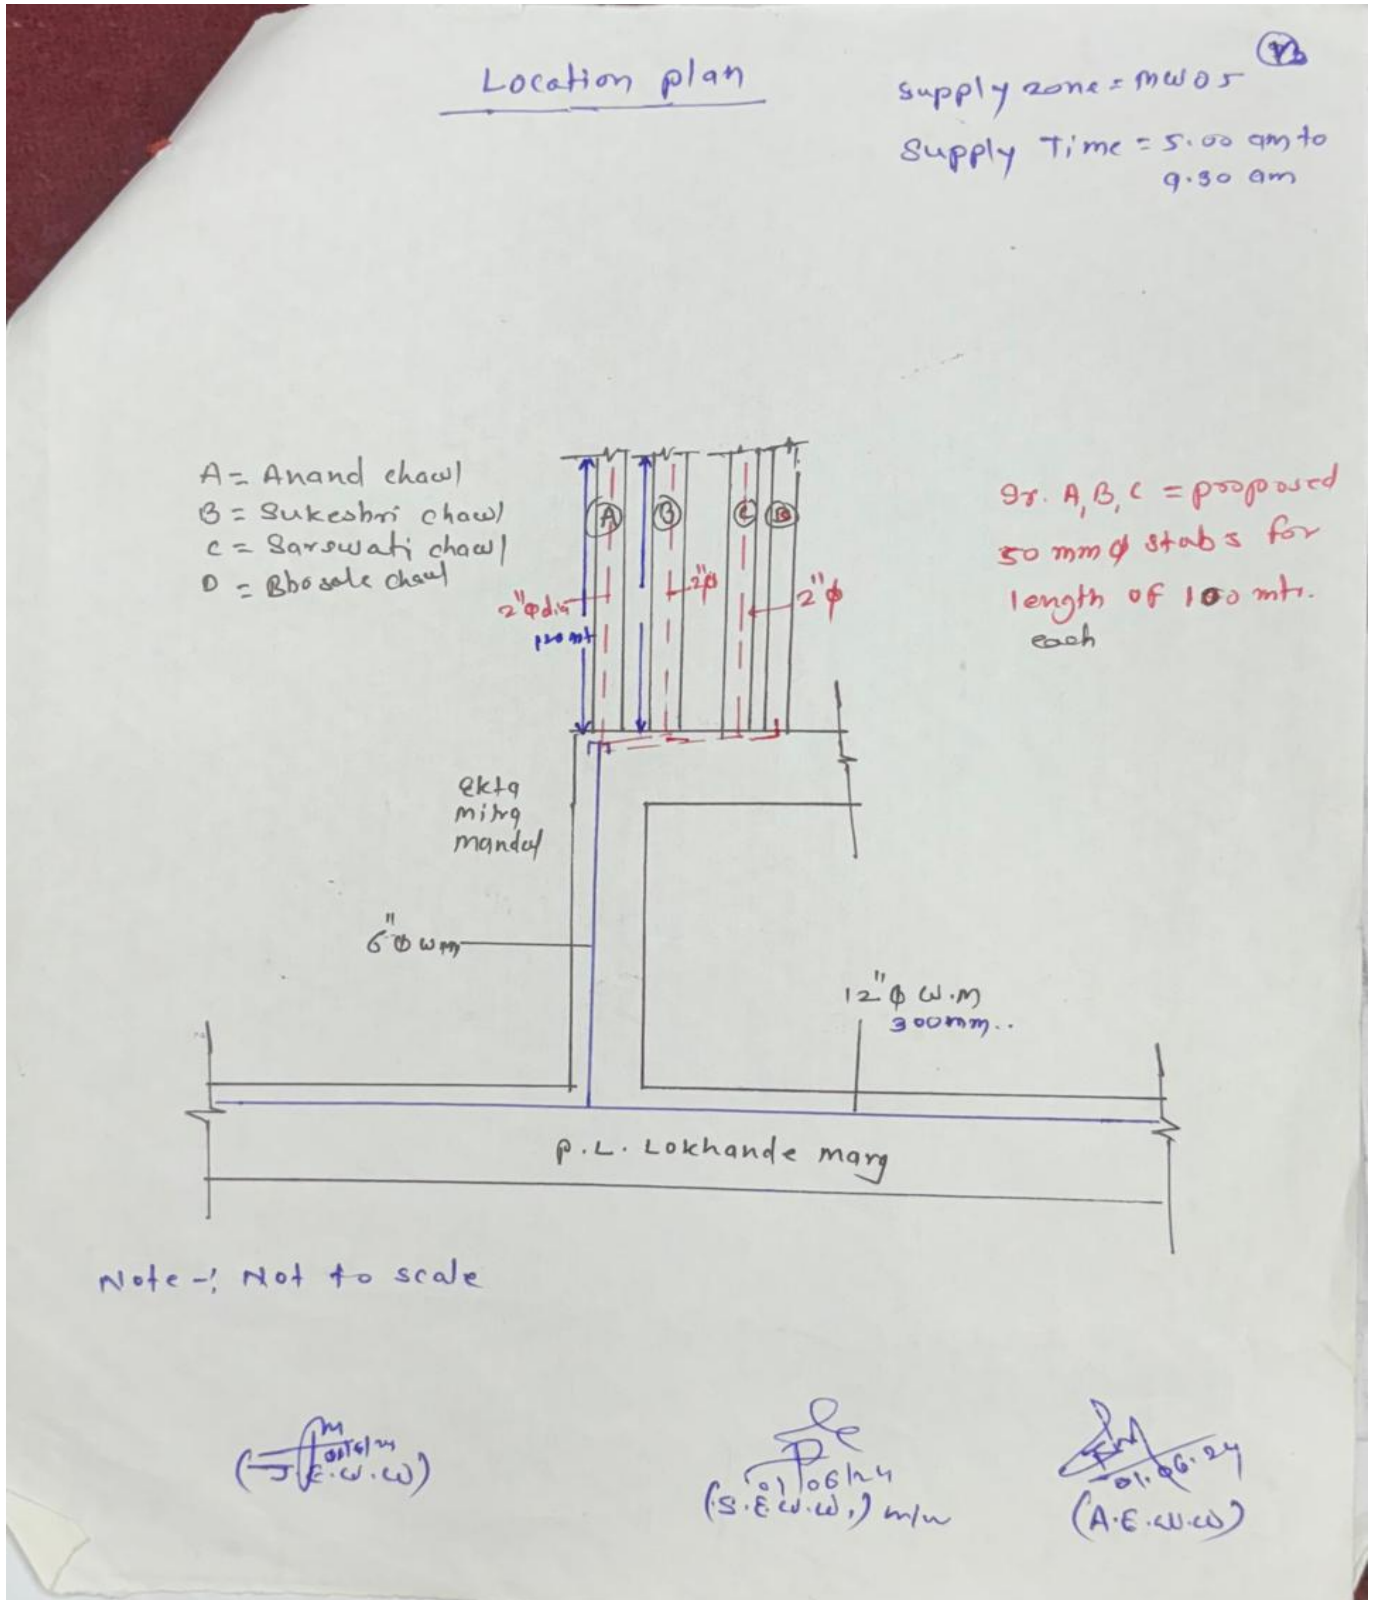 Location plan
Supply zone = MW05
Supply Time = 5.00 am to
9.30 am
A = Anand chawl
B = Sukeshri chawl
C = Sarswati chawl
D = Bhosale chawl
A
B
C
2"φ dia
2"φ
2"φ
120 mt
A, B, C = proposed
50 mm φ stabs for
length of 100 mtr.
each
Ekta
mitra
mandal
6"φ wm
12"φ W.M
300mm..
P.L. Lokhande marg
Note -: Not to scale
01/06/24
01.06.24
(J.E.W.W)
(S.E.W.W.) m/w
(A.E.W.W)